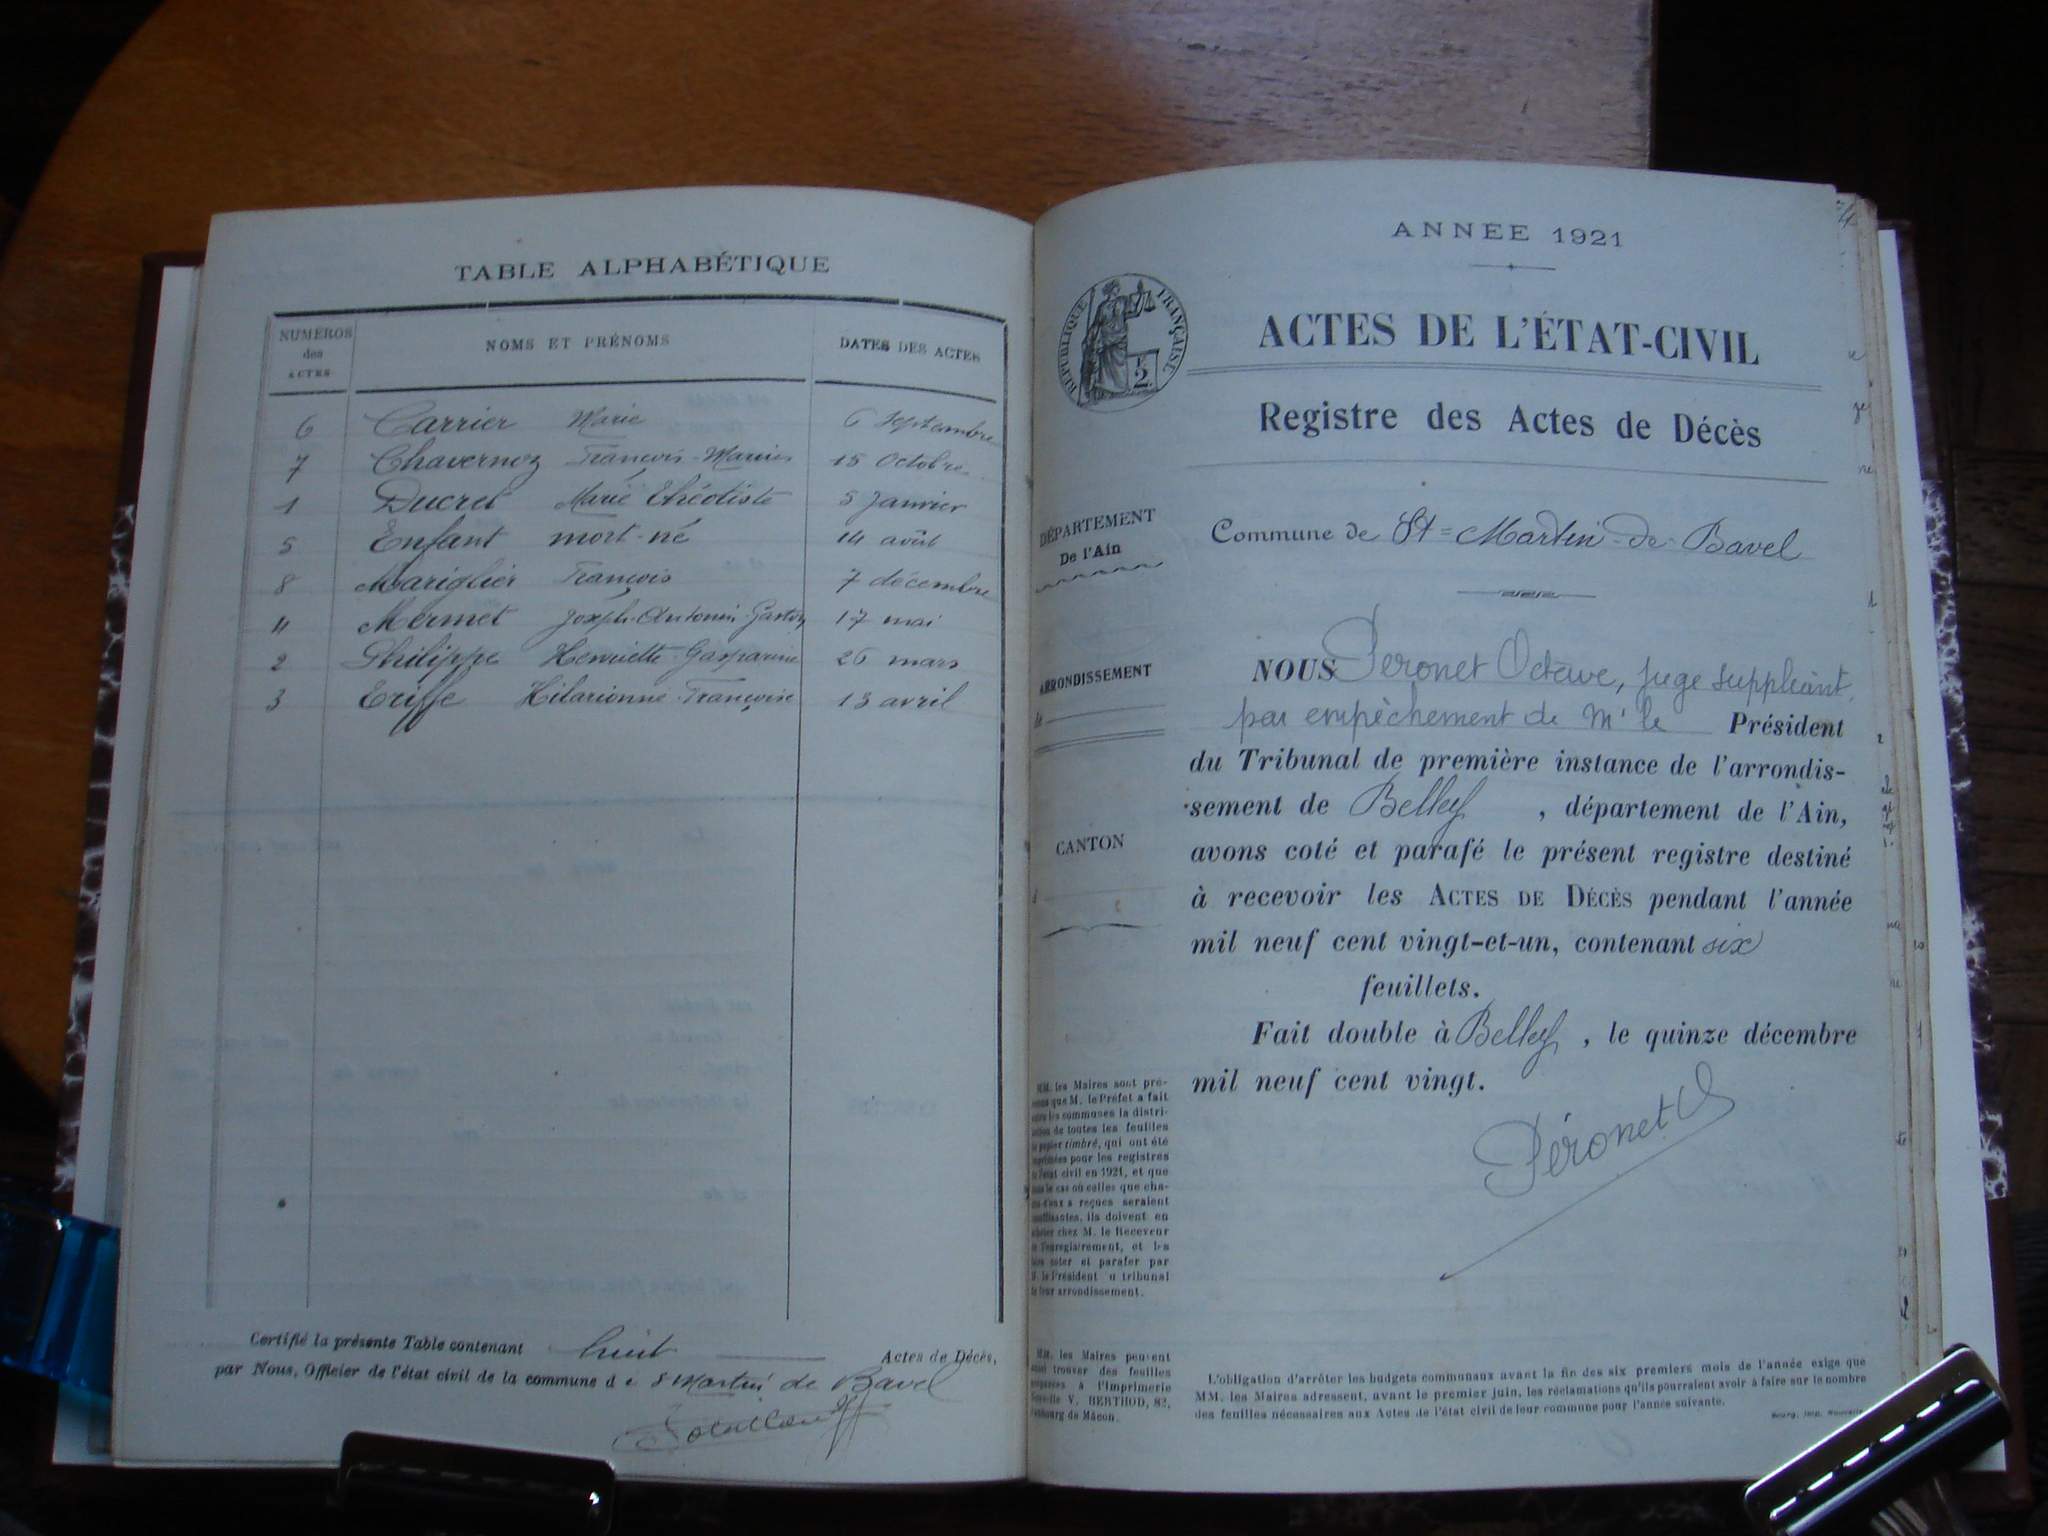 TABLE ALPHABÉTIQUE
NUMÉROS des ACTES
NOMS ET PRÉNOMS
DATES DES ACTES
6 Carrier Marie 6 Septembre
7 Chavernoz François-Marius 15 Octobre
1 Ducret Marie Théotiste 5 Janvier
5 Enfant mort-né 14 août
8 Mariglier François 7 décembre
4 Mermet Joseph-Antonin-Gaston 17 mai
2 Philippe Henriette-Gasparine 26 mars
3 Triffe Hilarionne-Françoise 13 avril
Certifié la présente Table contenant huit Actes de Décès,
par Nous, Officier de l'état civil de la commune de St Martin de Bavel
ANNÉE 1921
RÉPUBLIQUE FRANÇAISE
ACTES DE L'ÉTAT-CIVIL
Registre des Actes de Décès
DÉPARTEMENT
De l'Ain
Commune de St=Martin-de-Bavel
ARRONDISSEMENT
CANTON
NOUS Péronet Octave, juge suppléant,
par empêchement de Mr le Président
du Tribunal de première instance de l'arrondis-
sement de Belley, département de l'Ain,
avons coté et parafé le présent registre destiné
à recevoir les ACTES DE DÉCÈS pendant l'année
mil neuf cent vingt-et-un, contenant six
feuillets.
Fait double à Belley, le quinze décembre
mil neuf cent vingt.
Péronet
MM. les Maires sont pré-
que M. le Préfet a fait
les communes la distri-
de toutes les feuilles
papier timbré, qui ont été
pour les registres
civil en 1921, et que
le cas où celles que cha-
d'eux a reçues seraient
ils doivent en
chez M. le Receveur
et les
coter et parafer par
le Président tribunal
leur arrondissement.
MM. les Maires peuvent
trouver des feuilles
à l'Imprimerie
V. BERTHOD, 82,
de Mâcon.
L'obligation d'arrêter les budgets communaux avant la fin des six premiers mois de l'année exige que
MM. les Maires adressent, avant le premier juin, les réclamations qu'ils pourraient avoir à faire sur le nombre
des feuilles nécessaires aux Actes de l'état civil de leur commune pour l'année suivante.
Bourg, Imp. Nouvelle